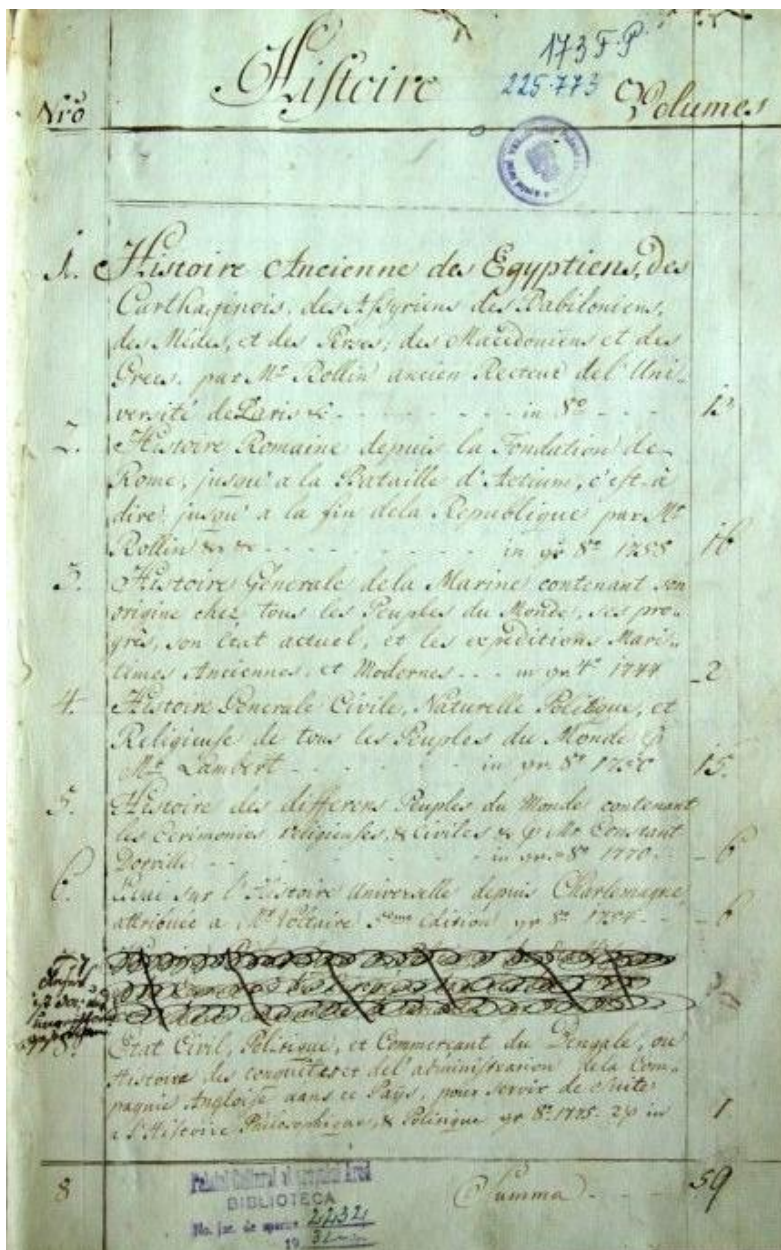 173 F P
225.773
Nro Histoire Volumes
1. Histoire Ancienne des Egyptiens, des
Carthaginois, des Assyriens des Babiloniens,
des Mèdes, et des Perses; des Macedoniens et des
Grecs. par Mr. Rollin ancien Recteur de l'Uni-
versité de Paris &c - - - in 8º - - -
2. Histoire Romaine depuis la Fondation de
Rome, jusqu'a la Bataille d'Actium, c'est-à
dire jusqu'a la fin dela Republique par Mr.
Rollin &c &c - - - in gr 8º 1758 16
3. Histoire Générale dela Marine contenant son
origine chez tous les Peuples du Monde, ses pro-
grès, son état actuel, et les expéditions Mari-
times Anciennes, et Modernes - - - in gr 4º 1744 2
4. Histoire Generale Civile, Naturelle Politique, et
Religieuse de tous les Peuples du Monde
Mr. Lambert - - - in gr. 8º 1750 15.
5. Histoire des differens Peuples du Monde contenant
les Cérémonies religieuses, & Civiles & Mr Constant
Dorville - - - in gr 8º 1770 - 6
6. Essai sur l'Histoire Universelle depuis Charlemagne,
attribuée a Mr. Voltaire Edition gr 8º 1754 - - 6
7
8. Etat Civil, Politique, et Commerçant du Bengale, ou
Histoire des conquêtes et de l'administration dela Com-
pagnie Angloise dans ce Pays, pour servir de Suite
a l'Histoire Philosophique, & Politique gr 8º 1775. in 1
8 Summa - - - 59
Palatul Cultural al Arad
BIBLIOTECA
No.
19